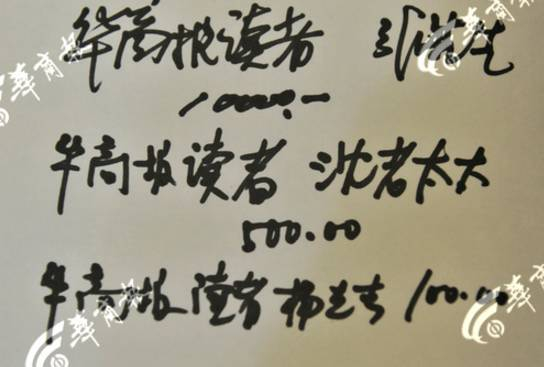 华商报读者 先生
10000.一
华商报读者 沈老太太
500.00
华商报读者 杨 100.00
華商報
華商報
華商報
華商報